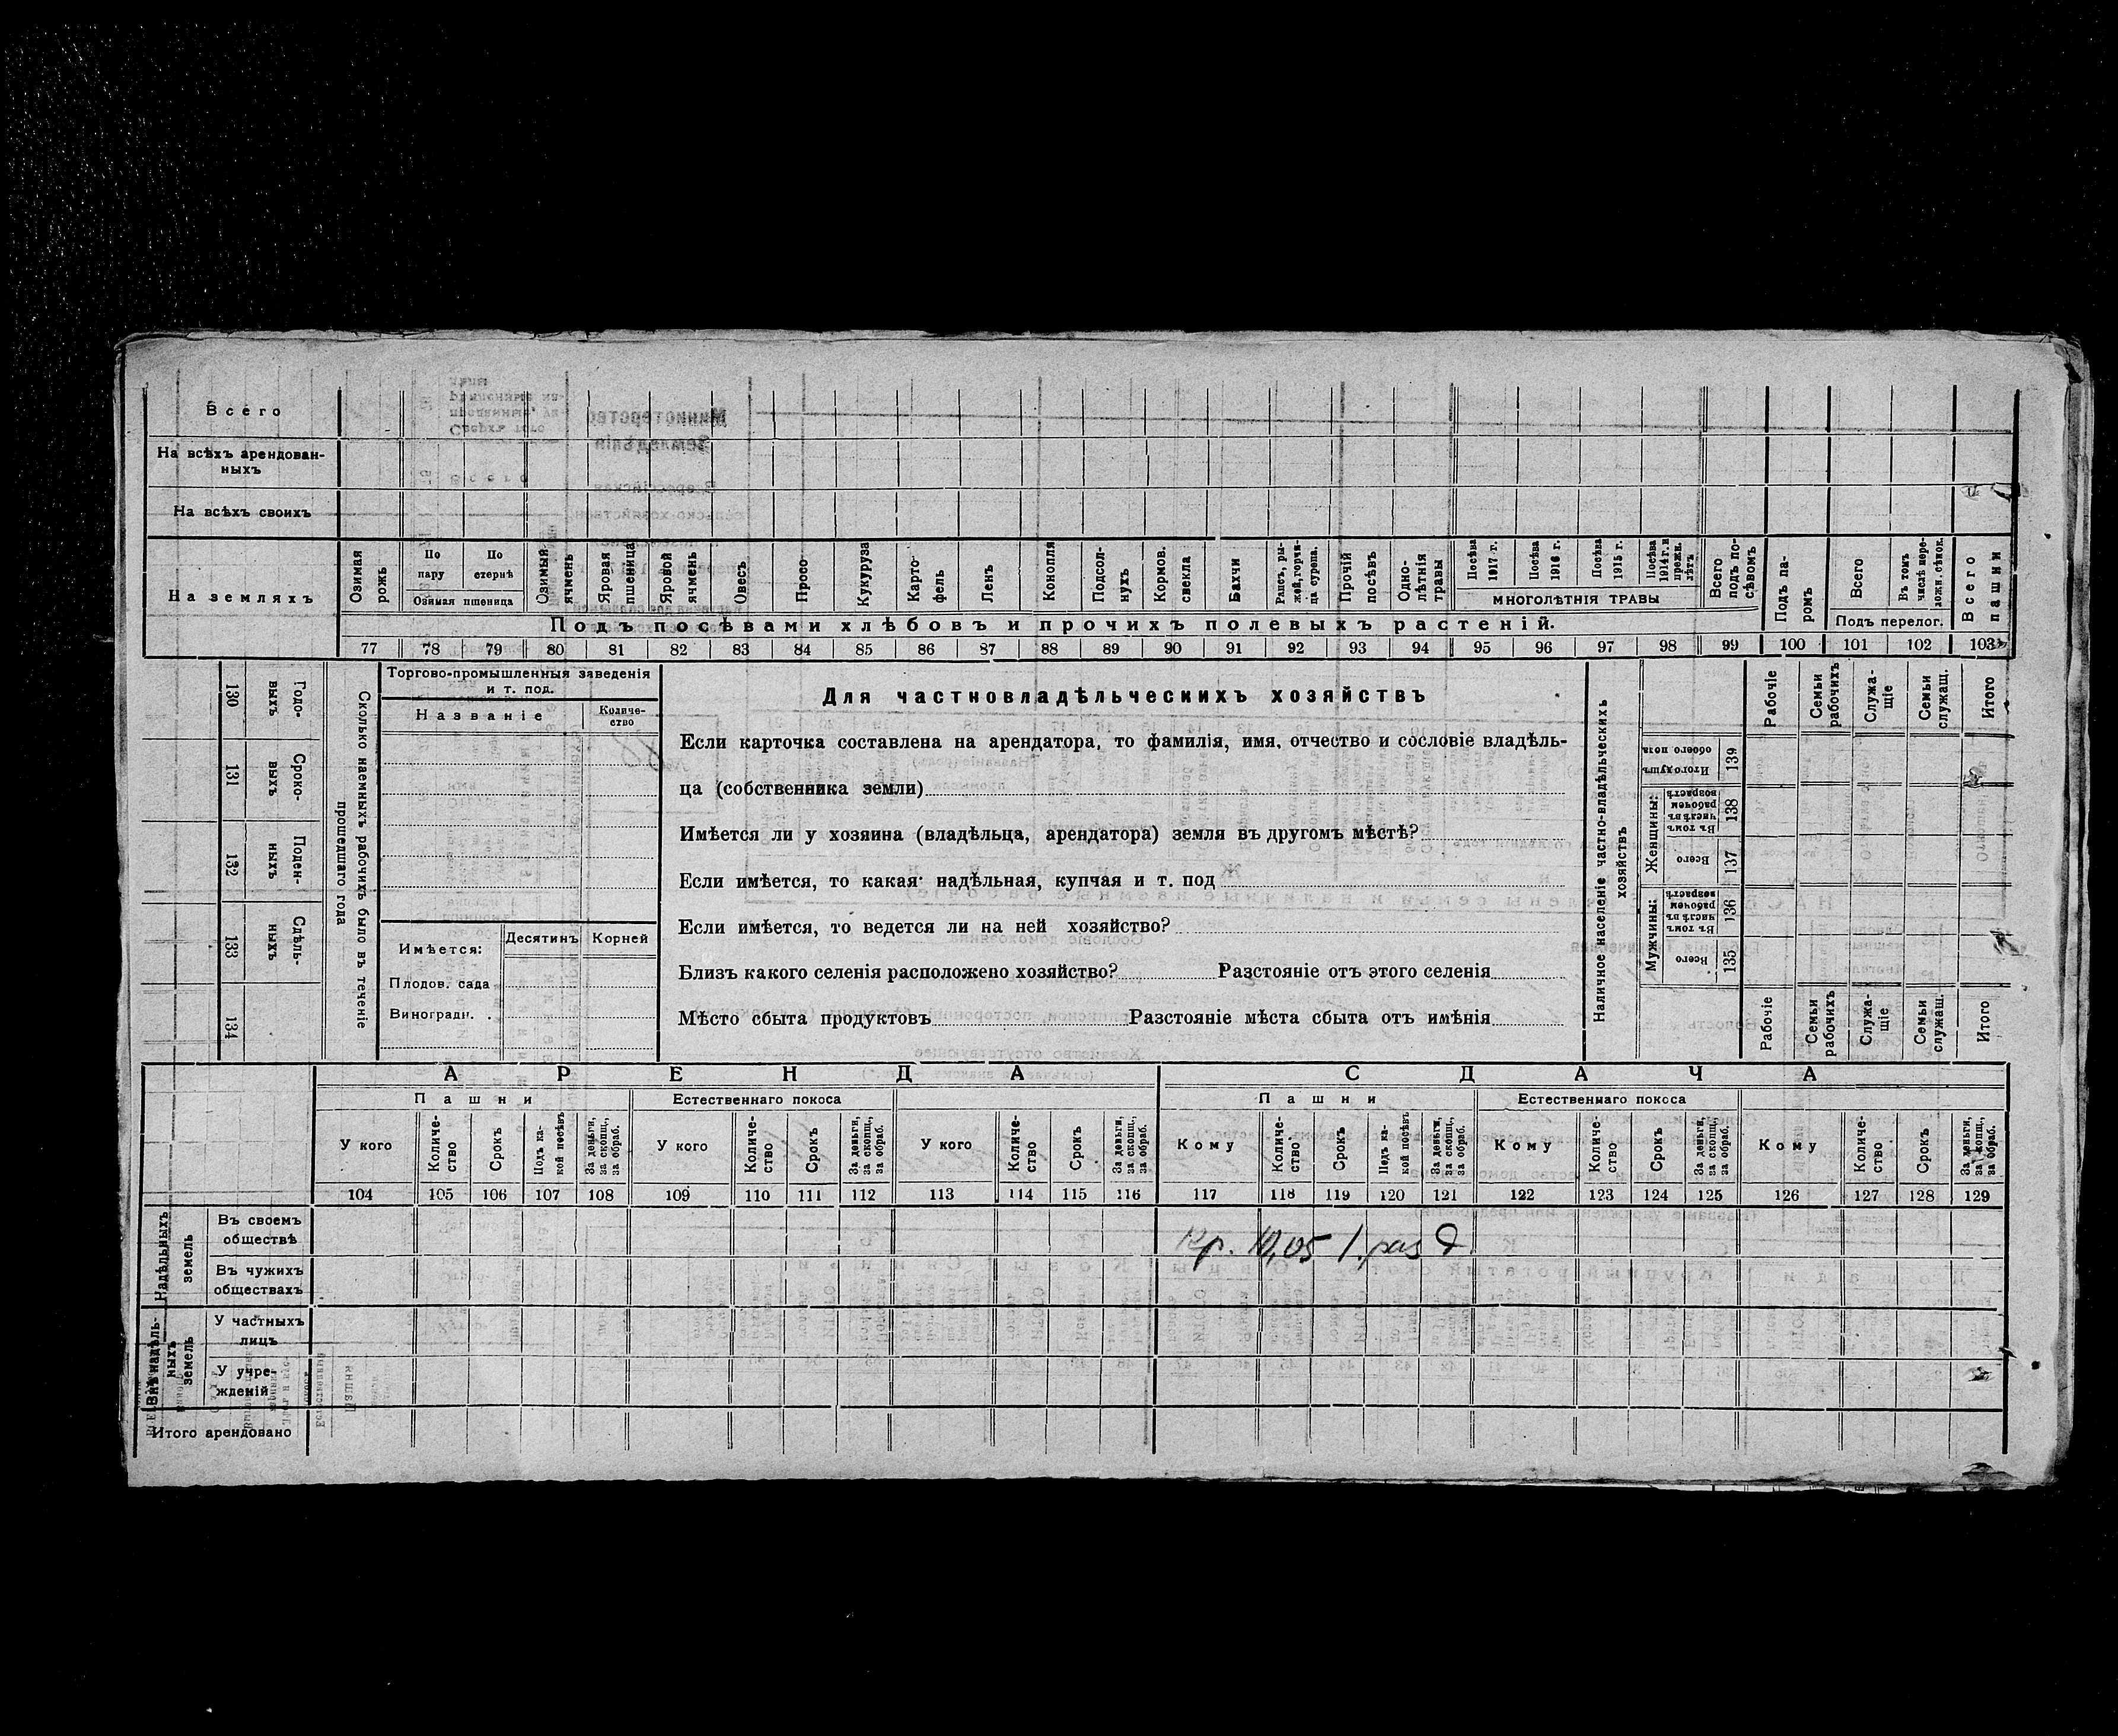 Всего
На всѣхъ арендован-
ныхъ
На всѣхъ своихъ
На земляхъ
Озимая рожь
По пару
По стернѣ
Озимая пшеница
Озимый ячмень
Яровая пшеница
Яровой ячмень
Овесъ
Просо
Кукуруза
Карто-
фель
Ленъ
Конопля
Подсол-
нухъ
Кормов. свекла
Бахчи
Рапсъ, ры-
жей, горчи-
ца сурепа.
Прочій посѣвъ
Одно-
лѣтнія травы
Посѣва 1917 г.
Посѣва 1916 г.
Посѣва 1915 г.
Посѣва 1914 г. и прежн. лѣтъ
МНОГОЛѢТНІЯ ТРАВЫ
Всего подъ по-
сѣвомъ
Подъ па-
ромъ
Всего
Въ томъ числѣ пере-
ложн. сѣнок.
Подъ перелог.
Всего пашни
Подъ посѣвами хлѣбовъ и прочихъ полевыхъ растеній.
77 78 79 80 81 82 83 84 85 86 87 88 89 90 91 92 93 94 95 96 97 98 99 100 101 102 103
130 Годо-
выхъ
131 Сроко-
выхъ
132 Поден-
ныхъ
133 Сдѣль-
ныхъ
134
Сколько наемныхъ рабочихъ было въ теченіе
прошедшаго года
Торгово-промышленныя заведенія
и т. под.
Названіе
Количе-
ство
Имѣется:
Десятинъ
Корней
Плодов. сада
Виноградн.
Для частновладѣльческихъ хозяйствъ
Если карточка составлена на арендатора, то фамилія, имя, отчество и сословіе владѣль-
ца (собственника земли)
Имѣется ли у хозяина (владѣльца, арендатора) земля въ другомъ мѣстѣ?
Если имѣется, то какая: надѣльная, купчая и т. под
Если имѣется, то ведется ли на ней хозяйство?
Близъ какого селенія расположено хозяйство? Разстояніе отъ этого селенія
Мѣсто сбыта продуктовъ Разстояніе мѣста сбыта отъ имѣнія
Наличное населеніе частно-владѣльческихъ
хозяйствъ
Рабочіе
Семьи рабочихъ
Служа-
щіе
Семьи служащ.
Итого
Итого душъ обоего пола 139
Женщины:
Въ томъ числѣ въ рабочемъ возрастѣ 138
Всего 137
Мужчины:
Въ томъ числѣ въ рабочемъ возрастѣ 136
Всего 135
Рабочіе
Семьи рабочихъ
Служа-
щіе
Семьи служащ.
Итого
АРЕНДА СДАЧА
Пашни Естественнаго покоса Пашни Естественнаго покоса
У кого
Количе-
ство
Срокъ
Подъ ка-
кой посѣвъ
За деньги, за скопщ., за обраб.
У кого
Количе-
ство
Срокъ
За деньги, за скопщ., за обраб.
У кого
Количе-
ство
Срокъ
За деньги, за скопщ., за обраб.
Кому
Количе-
ство
Срокъ
Подъ ка-
кой посѣвъ
За деньги, за скопщ., за обраб.
Кому
Количе-
ство
Срокъ
За деньги, за скопщ., за обраб.
Кому
Количе-
ство
Срокъ
За деньги, за скопщ., за обраб.
104 105 106 107 108 109 110 111 112 113 114 115 116 117 118 119 120 121 122 123 124 125 126 127 128 129
Надѣльныхъ
земель
Въ своемъ
обществѣ
Кр. 10,05 1. раз д
Въ чужихъ
обществахъ
Внѣнадѣль-
ныхъ
земель
У частныхъ
лицъ
У учре-
жденій
Итого арендовано